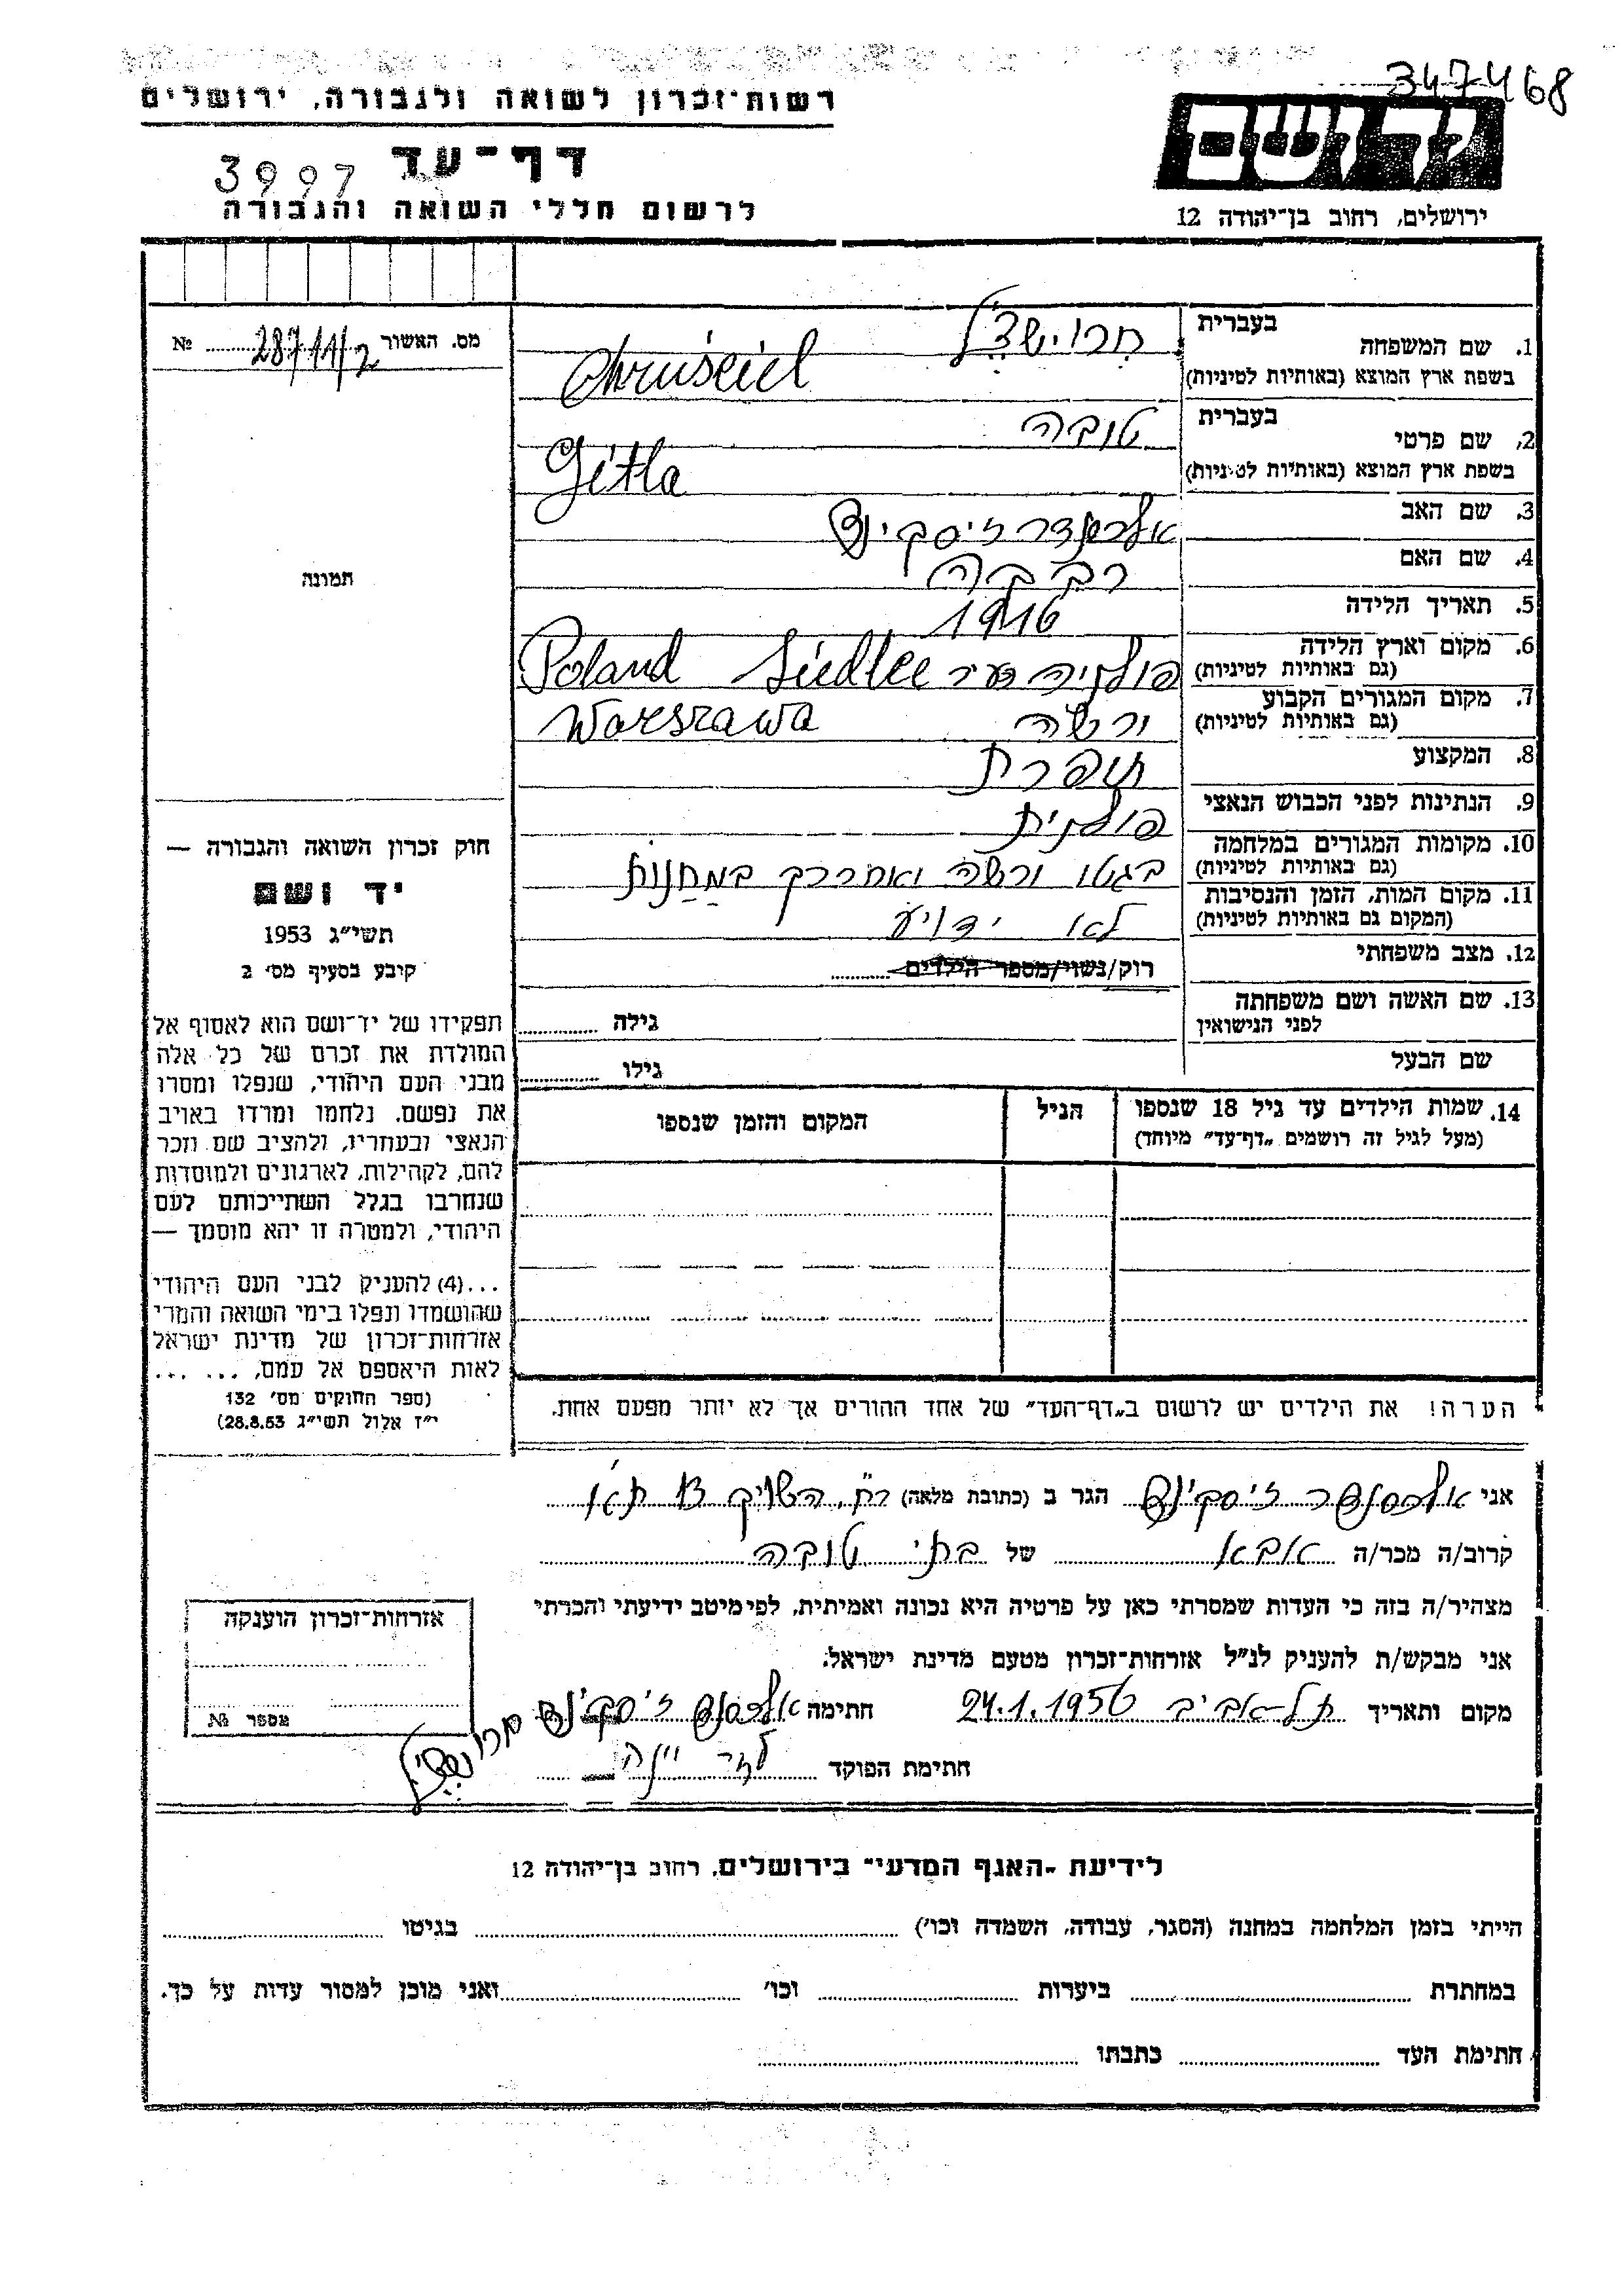 347468
רשות־זכרון לשואה ולגבורה, ירושלים
ידושם
דף־עד
3997
ירושלים, רחוב בן־יהודה 12
לרשום חללי השואה והגבורה
מס. האשור 28711/2 №
תמונה
חוק זכרון השואה והגבורה —
יד ושם
תשי״ג 1953
קיבע בסעיף מס׳ 2
תפקידו של יד־ושם הוא לאסוף אל
המולדת את זכרם של כל אלה
מבני העם היהודי, שנפלו ומסרו
את נפשם. נלחמו ומרדו באויב
הנאצי ובעוזריו, ולהציב שם וזכר
להם, לקהילות, לארגונים ולמוסדות
שנחרבו בגלל השתייכותם לעם
היהודי, ולמטרה זו יהא מוסמך —
...(4) להעניק לבני העם היהודי
שהושמדו ונפלו בימי השואה והמרי
אזרחות־זכרון של מדינת ישראל
לאות היאספם אל עמם, ... ...
(ספר החוקים מס׳ 132
י״ז אלול תשי״ג 28.8.53)
1. שם המשפחה בעברית חרוישצ׳ל
בשפת ארץ המוצא (באותיות לטיניות) Chruściel
2. שם פרטי בעברית טובה
בשפת ארץ המוצא (באותיות לטיניות) Gitla
3. שם האב אלכסנדר זיסקינד
4. שם האם רבקה
5. תאריך הלידה 1916
6. מקום וארץ הלידה
(גם באותיות לטיניות) פולניה בעיר Siedlce Poland
7. מקום המגורים הקבוע
(גם באותיות לטיניות) ורשה Warszawa
8. המקצוע תופרת
9. הנתינות לפני הכבוש הנאצי פולנית
10. מקומות המגורים במלחמה
(גם באותיות לטיניות) בגטו ורשה ואחרכך במחנות
11. מקום המות, הזמן והנסיבות
(המקום גם באותיות לטיניות) לא ידוע
12. מצב משפחתי רוק/נשוי/מספר הילדים
13. שם האשה ושם משפחתה
לפני הנישואין גילה
שם הבעל גילו
14. שמות הילדים עד גיל 18 שנספו הגיל המקום והזמן שנספו
(מעל לגיל זה רושמים „דף־עד״ מיוחד)
הערה! את הילדים יש לרשום ב„דף־העד״ של אחד ההורים אך לא יותר מפעם אחת.
אני אלכסנדר זיסקינד הגר ב (כתובת מלאה) רח׳ השוק 13 ת״א
קרוב/ה מכר/ה אבא של בתי טובה
מצהיר/ה בזה כי העדות שמסרתי כאן על פרטיה היא נכונה ואמיתית, לפי מיטב ידיעתי והכרתי
אני מבקש/ת להעניק לנ״ל אזרחות־זכרון מטעם מדינת ישראל.
מקום ותאריך תל־אביב 24.1.1956 חתימה אלכסנדר זיסקינד חרוישצ׳ל
חתימת הפוקד
אזרחות־זכרון הוענקה
מספר №
לידיעת „האגף המדעי״ בירושלים, רחוב בן־יהודה 12
הייתי בזמן המלחמה במחנה (הסגר, עבודה, השמדה וכו׳) בגיטו
במחתרת ביערות וכו׳ ואני מוכן למסור עדות על כך.
חתימת העד כתבתו